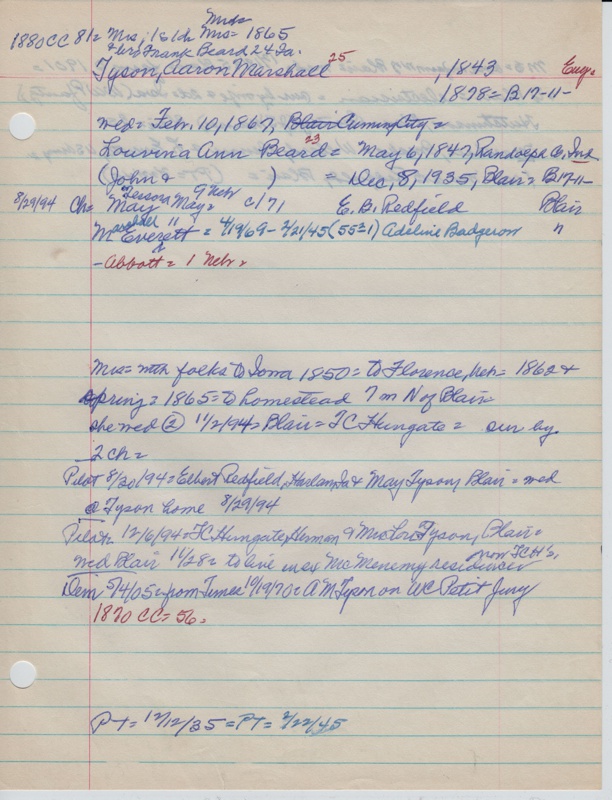 Mrs=
1880CC 81= Mrs, 1s 1dr Mrs= 1865
+ Mrs Frank Beard 24 Ia.
Tyson, Aaron Marshall 25 , 1843 Eug=
1878= B17-11-
wed= Feb. 10, 1867, Blair Cuming City=
Louvina Ann Beard 23 = May 6, 1847, Randolph Co, Ind
(John & ) = Dec, 8, 1935, Blair= B17-11-
Tessora 9 Neb
8/29/94 Ch= May May= c/71 E. B. Redfield Blair
Marshall 11
M Everett = 4/19/69- 2/21/45 (55±1) Adeline Badgerow "
- Abbott= 1 Neb=
Mrs= with folks to Iowa 1850= to Florence, Neb= 1862 &
spring= 1865= to homestead 7 m N of Blair=
she wed ② 11/2/94= Blair= TC Hungate= sur by
2 ch=
Pilot 8/30/94= Elbert Redfield, Harlan, Ia & May Tyson, Blair= wed
@ Tyson home 8/29/94
Pilot= 12/6/94= TC Hungate, Herman & Mrs Lou Tyson, Blair=
wed Blair 11/28= to live in ex McMenemy residence now TCH's,
Dem 5/4/05= from Times 10/19/70= A M Tyson on WC Petit Jury
1870 CC= 56=
PT= 12/12/35= PT= 2/22/45